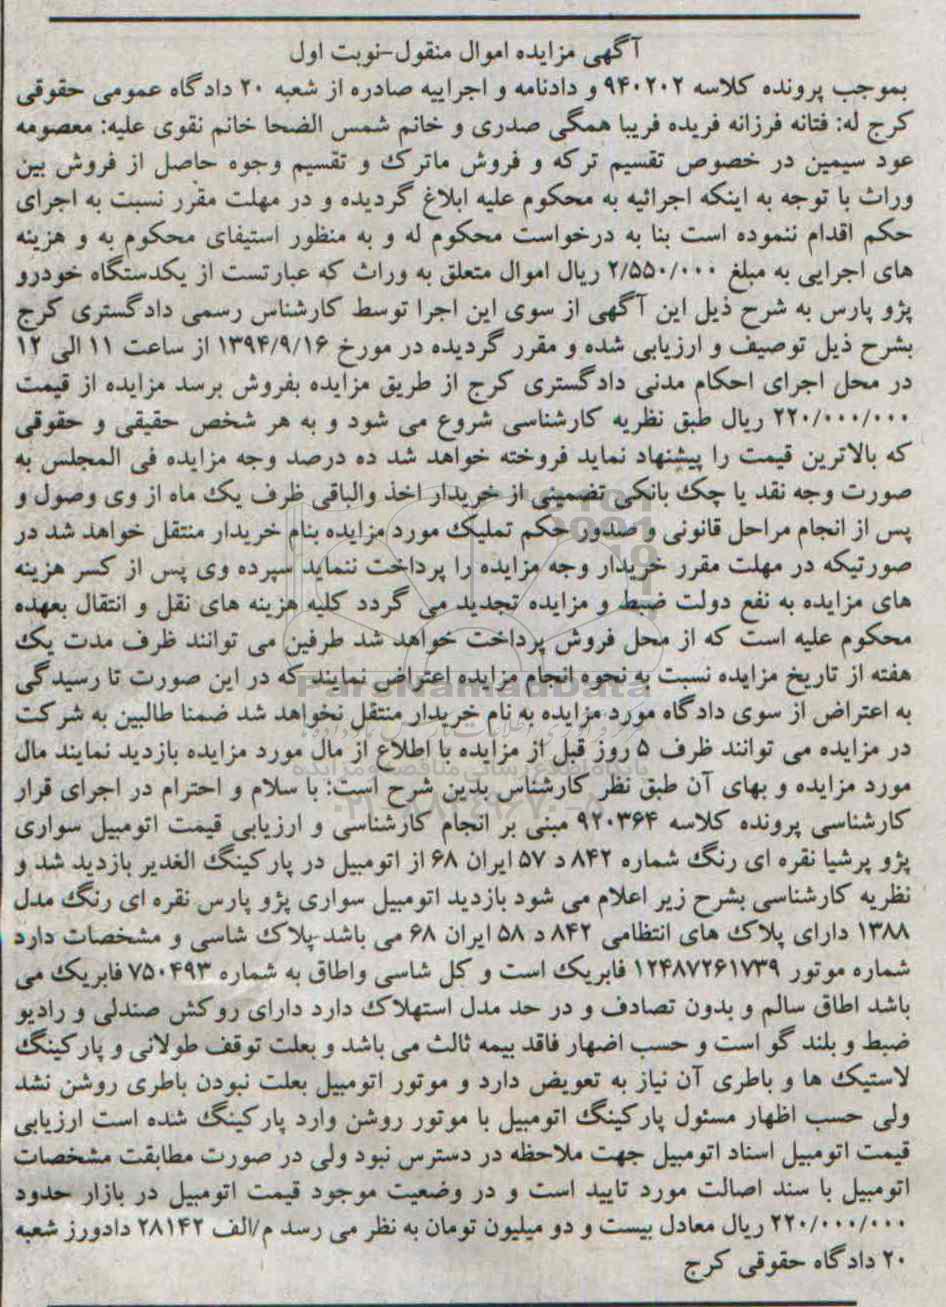 آگهی مزایده اموال منقول-نوبت اول
بموجب پرونده کلاسه ۹۴۰۲۰۲ و دادنامه و اجراییه صادره از شعبه ۲۰ دادگاه عمومی حقوقی
کرج له: فتانه فرزانه فریده فریبا همگی صدری و خانم شمس الضحا خانم نقوی علیه: معصومه
عود سیمین در خصوص تقسیم ترکه و فروش ماترک و تقسیم وجوه حاصل از فروش بین
وراث با توجه به اینکه اجرائیه به محکوم علیه ابلاغ گردیده و در مهلت مقرر نسبت به اجرای
حکم اقدام ننموده است بنا به درخواست محکوم له و به منظور استیفای محکوم به و هزینه
های اجرایی به مبلغ ۲/۵۵۰/۰۰۰ ریال اموال متعلق به وراث که عبارتست از یکدستگاه خودرو
پژو پارس به شرح ذیل این آگهی از سوی این اجرا توسط کارشناس رسمی دادگستری کرج
بشرح ذیل توصیف و ارزیابی شده و مقرر گردیده در مورخ ۱۳۹۴/۹/۱۶ از ساعت ۱۱ الی ۱۲
در محل اجرای احکام مدنی دادگستری کرج از طریق مزایده بفروش برسد مزایده از قیمت
۲۲۰/۰۰۰/۰۰۰ ریال طبق نظریه کارشناسی شروع می شود و به هر شخص حقیقی و حقوقی
که بالاترین قیمت را پیشنهاد نماید فروخته خواهد شد ده درصد وجه مزایده فی المجلس به
صورت وجه نقد یا چک بانکی تضمینی از خریدار اخذ والباقی ظرف یک ماه از وی وصول و
پس از انجام مراحل قانونی و صدور حکم تملیک مورد مزایده بنام خریدار منتقل خواهد شد در
صورتیکه در مهلت مقرر خریدار وجه مزایده را پرداخت ننماید سپرده وی پس از کسر هزینه
های مزایده به نفع دولت ضبط و مزایده تجدید می گردد کلیه هزینه های نقل و انتقال بعهده
محکوم علیه است که از محل فروش پرداخت خواهد شد طرفین می توانند ظرف مدت یک
هفته از تاریخ مزایده نسبت به نحوه انجام مزایده اعتراض نمایند که در این صورت تا رسیدگی
ParsNamadData
به اعتراض از سوی دادگاه مورد مزایده به نام خریدار منتقل نخواهد شد ضمنا طالبین به شرکت
در مزایده می توانند ظرف ۵ روز قبل از مزایده با اطلاع از مال مورد مزایده بازدید نمایند مال
پایگاه اطلاع رسانی مناقصه و مزایده
مورد مزایده و بهای آن طبق نظر کارشناس بدین شرح است: با سلام و احترام در اجرای قرار
کارشناسی پرونده کلاسه ۹۲۰۳۶۴ مبنی بر انجام کارشناسی و ارزیابی قیمت اتومبیل سواری
پژو پرشیا نقره ای رنگ شماره ۸۴۲ د ۵۷ ایران ۶۸ از اتومبیل در پارکینگ الغدیر بازدید شد و
نظریه کارشناسی بشرح زیر اعلام می شود بازدید اتومبیل سواری پژو پارس نقره ای رنگ مدل
۱۳۸۸ دارای پلاک های انتظامی ۸۴۲ د ۵۸ ایران ۶۸ می باشد-پلاک شاسی و مشخصات دارد
شماره موتور ۱۲۴۸۷۲۶۱۷۳۹ فابریک است و کل شاسی واطاق به شماره ۷۵۰۴۹۳ فابریک می
باشد اطاق سالم و بدون تصادف و در حد مدل استهلاک دارد دارای روکش صندلی و رادیو
ضبط و بلند گو است و حسب اضهار فاقد بیمه ثالث می باشد و بعلت توقف طولانی و پارکینگ
لاستیک ها و باطری آن نیاز به تعویض دارد و موتور اتومبیل بعلت نبودن باطری روشن نشد
ولی حسب اظهار مسئول پارکینگ اتومبیل با موتور روشن وارد پارکینگ شده است ارزیابی
قیمت اتومبیل اسناد اتومبیل جهت ملاحظه در دسترس نبود ولی در صورت مطابقت مشخصات
اتومبیل با سند اصالت مورد تایید است و در وضعیت موجود قیمت اتومبیل در بازار حدود
۲۲۰/۰۰۰/۰۰۰ ریال معادل بیست و دو میلیون تومان به نظر می رسد م/الف ۲۸۱۴۲ دادورز شعبه
۲۰ دادگاه حقوقی کرج